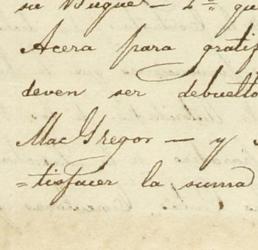 su Buque — 2º qu
Acera para gratif
deven ser debuelto
MacGregor — y s
=tisfacer la suma